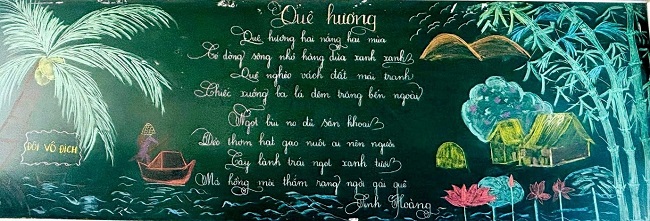 Quê hương
Quê hương hai nắng hai mùa
Có dòng sông nhỏ hàng dừa xanh xanh
Quê nghèo vách đất mái tranh
Chiếc xuồng ba lá đêm trăng bến ngoài
Ngọt bùi no đủ sắn khoai
Dẻo thơm hạt gạo nuôi ai nên người
Cây lành trái ngọt xanh tươi
Má hồng môi thắm rạng ngời gái quê
Tình Hoàng
ĐỘI VÔ ĐỊCH